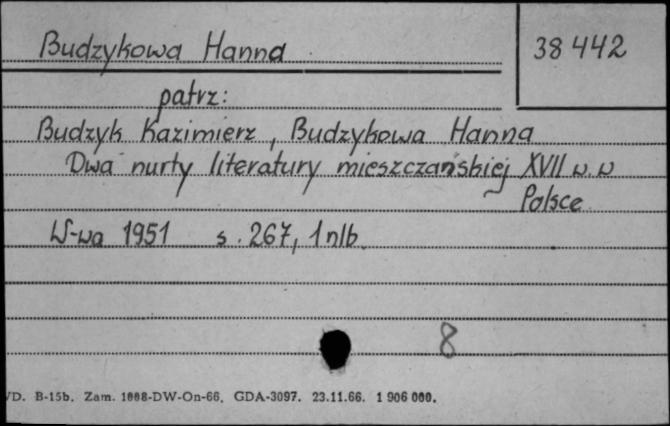 Budzykowa Hanna
38 442
patrz:
Budzyk Kazimierz, Budzykowa Hanna
Dwa nurty literatury mieszczańskiej XVII w. w
Polsce
W-wa 1951 s. 267, 1 nlb.
8
VD. B-15b. Zam. 1008-DW-On-66. GDA-3097. 23.11.66. 1 906 000.